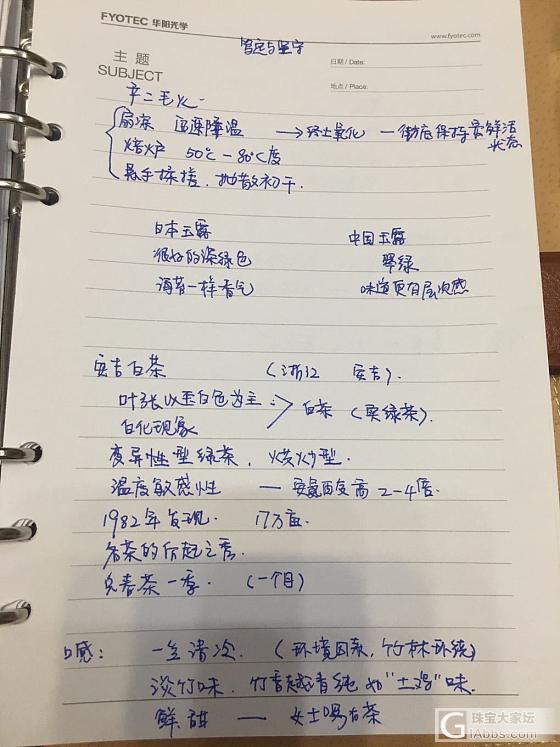 FYOTEC 华阳光学
www.fyotec.com
坚守
主题
SUBJECT
日期 / Date:
地点 / Place:
辛二毛火
扇凉 迅速降温 → 终止氧化 — 彻底保持最鲜活状态
烤炉 50℃ - 80℃度
悬手揉搓, 抛散初干.
日本玉露 中国玉露
很好的深绿色 翠绿
海苔一样香气 味道更有层次感
安吉白茶 (浙江 安吉).
叶张以玉白色为主
白化现象
白茶 (实绿茶).
变异性型绿茶, 烘炒型.
温度敏感性 — 安氨酸高 2-4倍.
1982年发现. 17万亩.
名茶的后起之秀.
只春茶一季. (一个月)
口感: 一生清次. (环境因素, 竹林环绕)
淡竹味. 竹香越青纯 如"土鸡"味.
鲜甜 — 女士喝白茶
珠宝大家坛
iGiabbs.com